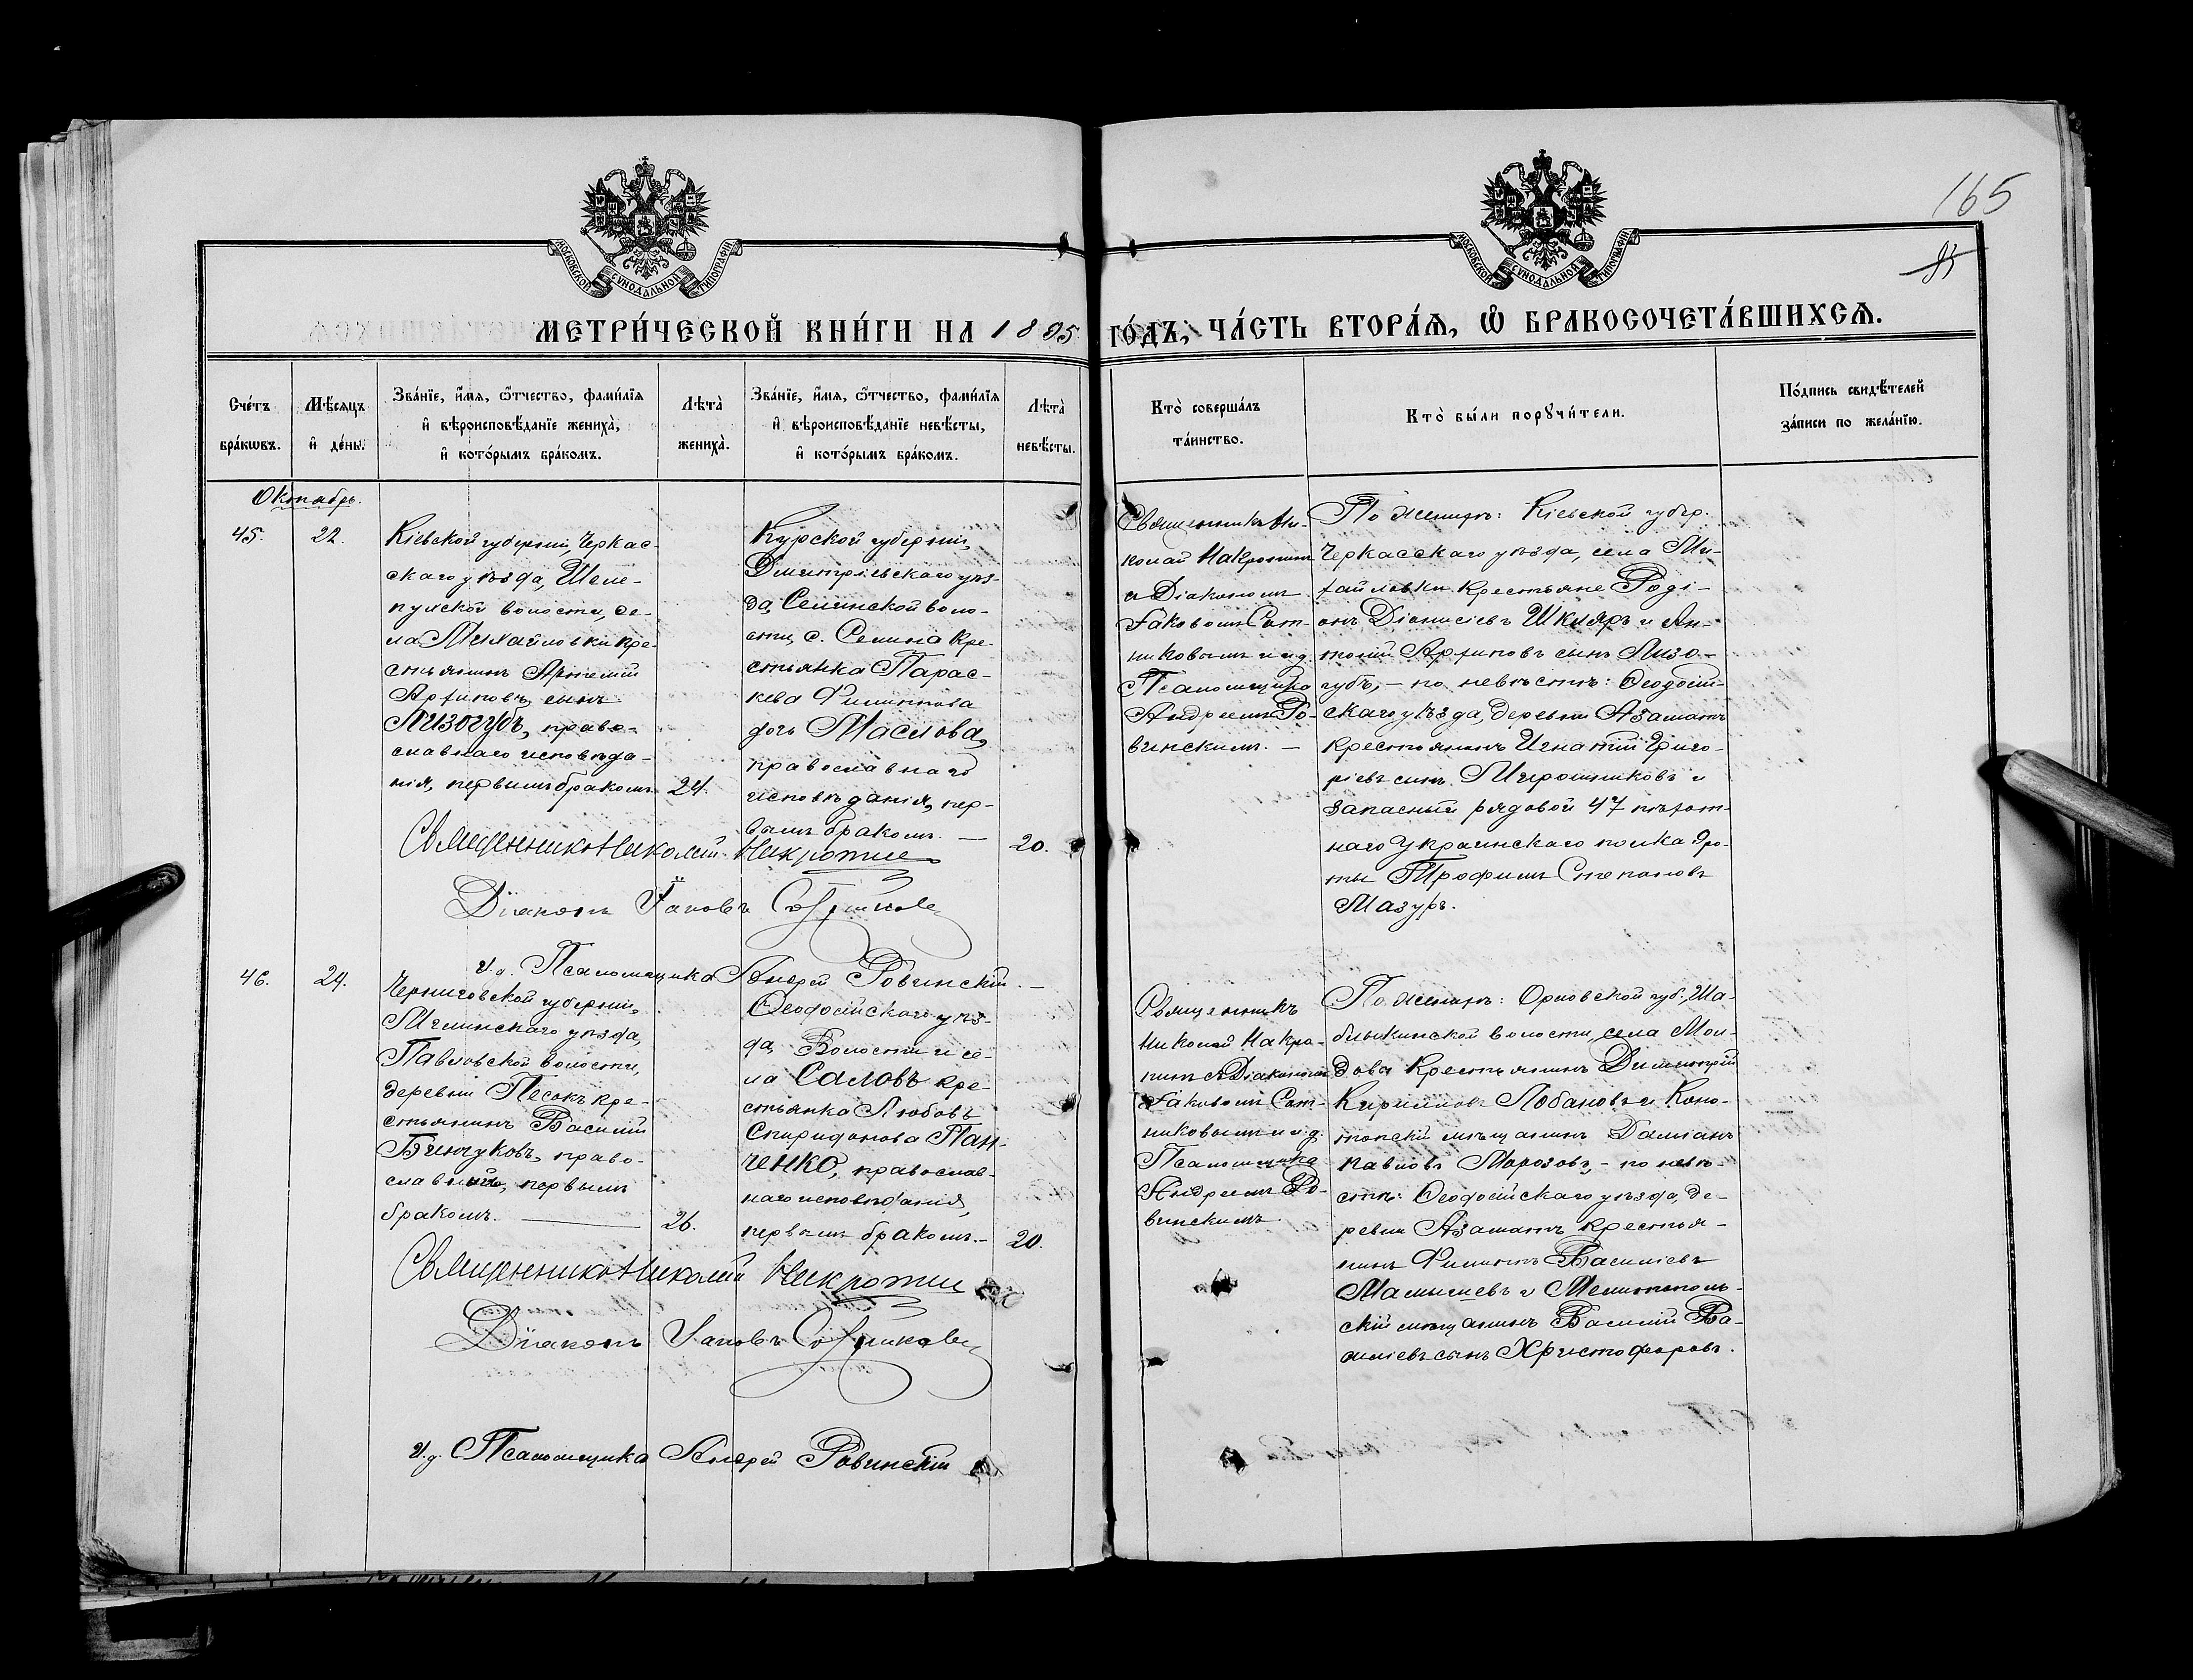 МОСКОВСКОЙ СѴНОДАЛЬНОЙ ТИПОГРАФІИ
МОСКОВСКОЙ СѴНОДАЛЬНОЙ ТИПОГРАФІИ
165
МЕТРИ́ЧЕСКОЙ КНИ́ГИ НА 1895 ГО́ДЪ, ЧА́СТЬ ВТОРА́Ѧ, Ѽ БРАКОСОЧЕТА́ВШИХСѦ.
Сче́тъ бра́кѡвъ.
Мѣ́сѧцъ и҆ де́нь.
Зва́нїе, и҆́мѧ, ѻ҆́тчество, фами́лїѧ и҆ вѣроисповѣ́данїе жениха̀, и҆ кото́рымъ бра́комъ.
Лѣта̀ жениха̀.
Зва́нїе, и҆́мѧ, ѻ҆́тчество, фами́лїѧ и҆ вѣроисповѣ́данїе невѣ́сты, и҆ кото́рымъ бра́комъ.
Лѣта̀ невѣ́сты.
Кто̀ соверша́лъ та́инство.
Кто̀ бы́ли порꙋчи́тели.
По́дпись свидѣ́телей за́писи по жела́нїю.
Октябрь.
45.
22.
Кіевской губерніи, Черкас-
скаго уѣзда, Шеле-
пухской волости, се-
ла Михайловки кре-
стьянинъ Артемій
Архиповъ сынъ
Лизогубъ, право-
славнаго исповѣда-
нія, первымъ бракомъ
24.
Курской губерніи,
Дмитріевскаго уѣз-
да, Селинской воло-
сти, с. Селина кре-
стьянка Парас-
кева Филиппова
дочь Маслова,
православнаго
исповѣданія, пер-
вымъ бракомъ. —
20.
Священникъ Ни-
колай Накропинъ
съ Діакономъ
Іаковомъ Сот-
никовымъ и и.д.
Псаломщика
Андреемъ Ро-
винскимъ. —
По женихѣ: Кіевской губер.
Черкасскаго уѣзда, села Ми-
хайловки крестьяне Роді-
онъ Діонисіевъ Шкляръ и Ан-
тоній Архиповъ сынъ Лизо-
губъ, — по невѣстѣ: Ѳеодосій-
скаго уѣзда, деревни Азаматъ
крестьянинъ Игнатій Григо-
ріевъ сынъ Мирошниковъ и
запасный рядовой 47 пѣхот-
наго Украинскаго полка 9 ро-
ты Трофимъ Степановъ
Мазуръ.
Священникъ Николай
Діаконъ Іаковъ Сотниковъ
И.д. Псаломщика Андрей Ровинскій. —
46.
24.
Черниговской губерніи,
Мглинскаго уѣзда,
Павловской волости,
деревни Песокъ кре-
стьянинъ Василій
Бинчуковъ, право-
славный, первымъ
бракомъ. —
26.
Ѳеодосійскаго уѣз-
да, Волости и се-
ла Саловъ кре-
стьянка Любовь
Спиридонова Пан-
ченко, православ-
наго исповѣданія,
первымъ бракомъ. —
20.
Священникъ
Николай Накро-
пинъ съ Діакономъ
Іаковомъ Сот-
никовымъ и и.д.
Псаломщика
Андреемъ Ро-
винскимъ.
По женихѣ: Орловской губ., Ша-
блыкинской волости, села Мол-
дова крестьянинъ Димитрій
Кирилловъ Лобановъ и Коно-
топскій мѣщанинъ Даміанъ
Павловъ Морозовъ, — по невѣ-
стѣ: Ѳеодосійскаго уѣзда, де-
ревни Азаматъ крестья-
нинъ Филиппъ Василіевъ
Мамышевъ и Мелитополь-
скій мѣщанинъ Василій Ва-
силіевъ сынъ Христофоровъ.
Священникъ Николай
Діаконъ Іаковъ Сотниковъ
И.д. Псаломщика Андрей Ровинскій